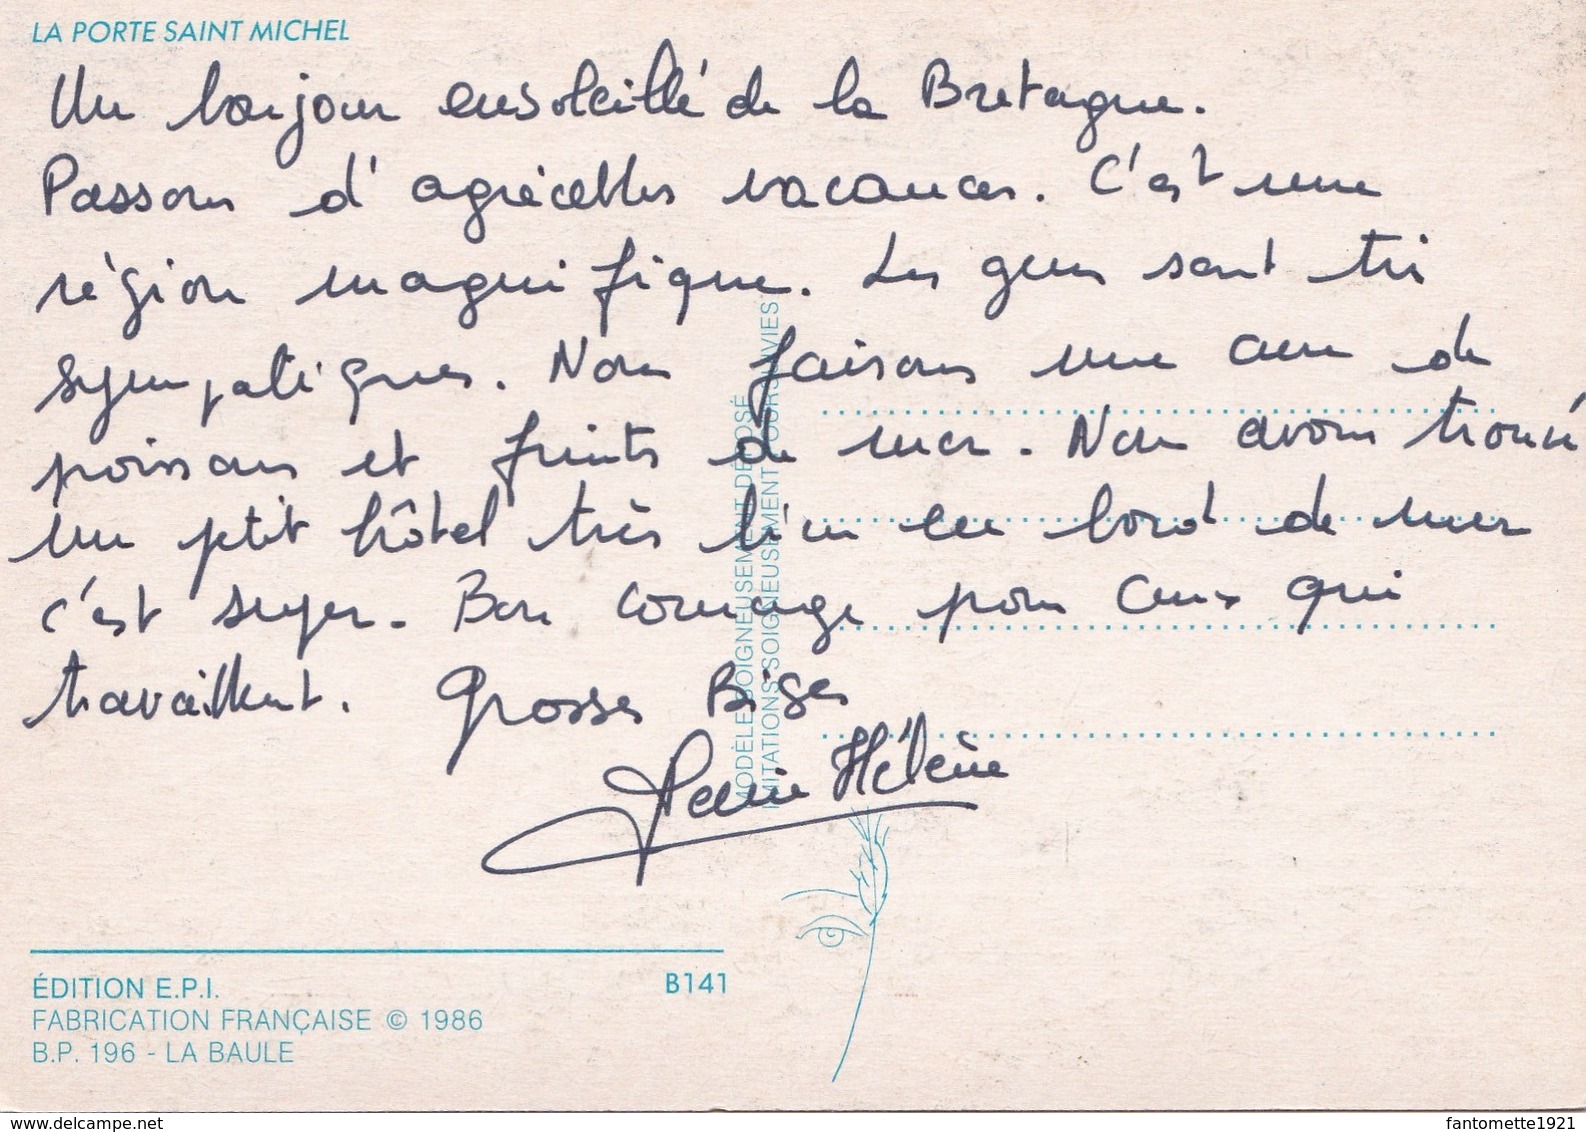 LA PORTE SAINT MICHEL
Un bonjour ensoleillé de la Bretagne.
Passons d'agréables vacances. C'est une
région magnifique. Les gens sont très
sympatiques. Nous faisons une cure de
poissons et fruits de mer. Nous avons trouvé
un ptit hôtel très bien en bord de mer
c'est super. Bon courage pour ceux qui
travaillent. Grosses Bises
Marie Hélène
MODÈLE SOIGNEUSEMENT DÉPOSÉ
IMITATIONS SOIGNEUSEMENT POURSUIVIES
ÉDITION E.P.I. B141
FABRICATION FRANÇAISE © 1986
B.P. 196 - LA BAULE
www.delcampe.net fantomette1921